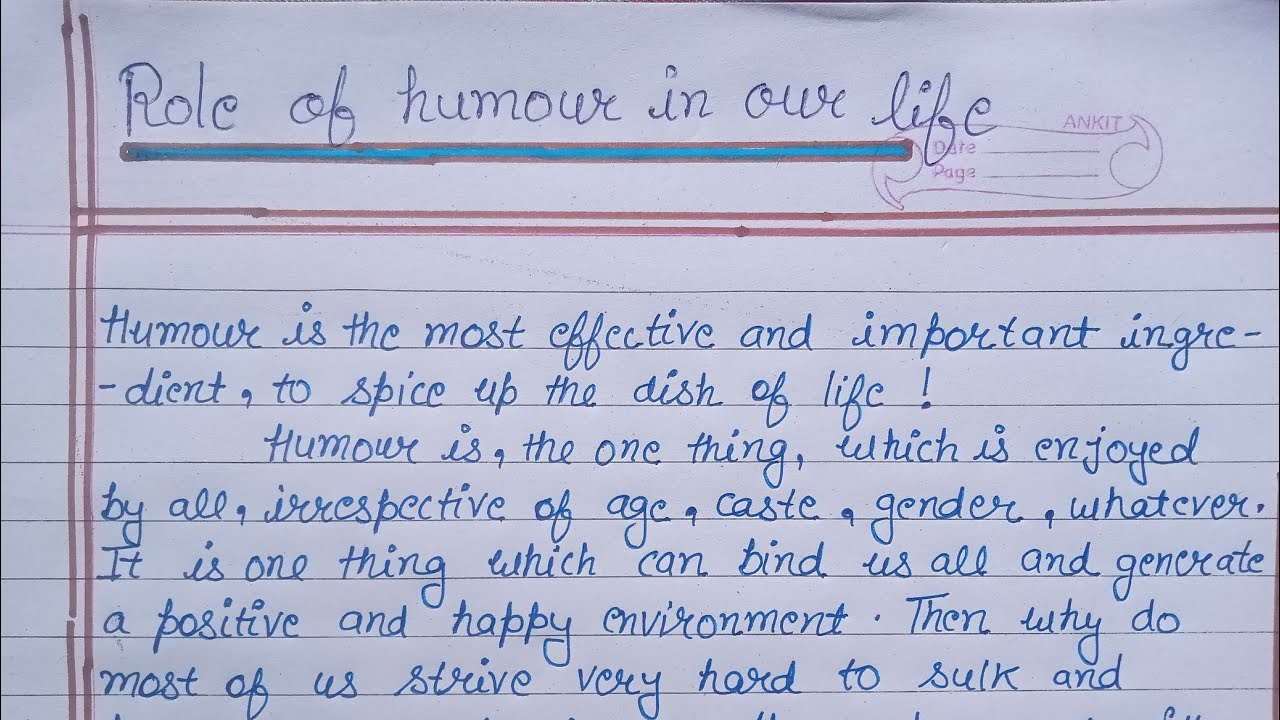 Role of humour in our life
ANKIT
Date
Page
Humour is the most effective and important ingre-
-dient, to spice up the dish of life !
Humour is, the one thing, which is enjoyed
by all, irrespective of age, caste, gender, whatever.
It is one thing which can bind us all and generate
a positive and happy environment. Then why do
most of us strive very hard to sulk and